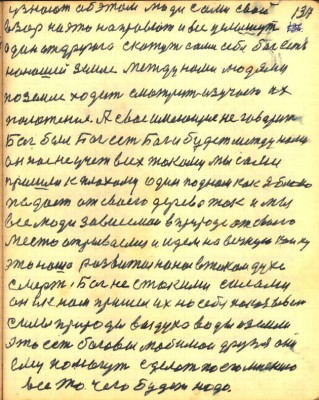 узнают об этом люди сами свой 137
взор на это направют и все услышут
один от другого скажут сами себе Бог есть
на нашей земле между нами людями
по земле ходит смотрит изучает их
положение. А свое имеющие не говорит
Бог был Бог есть Бог и будет между нами
он нас не учет всех такому мы сами
пришли к плохому один по одном как яблоко
падает от своего дерево так и мы
все люди зависимая в природе от своего
место отрываемся и идем на вечную
это наша развитая нами в таком духе
смерть. Бог не с такими силами
он к нам пришел их на себе показывает
силы природы воздух вода и земля
это есть боговы любимой друзья они
ему помогут сделать постепенно
все то. чего будет надо.